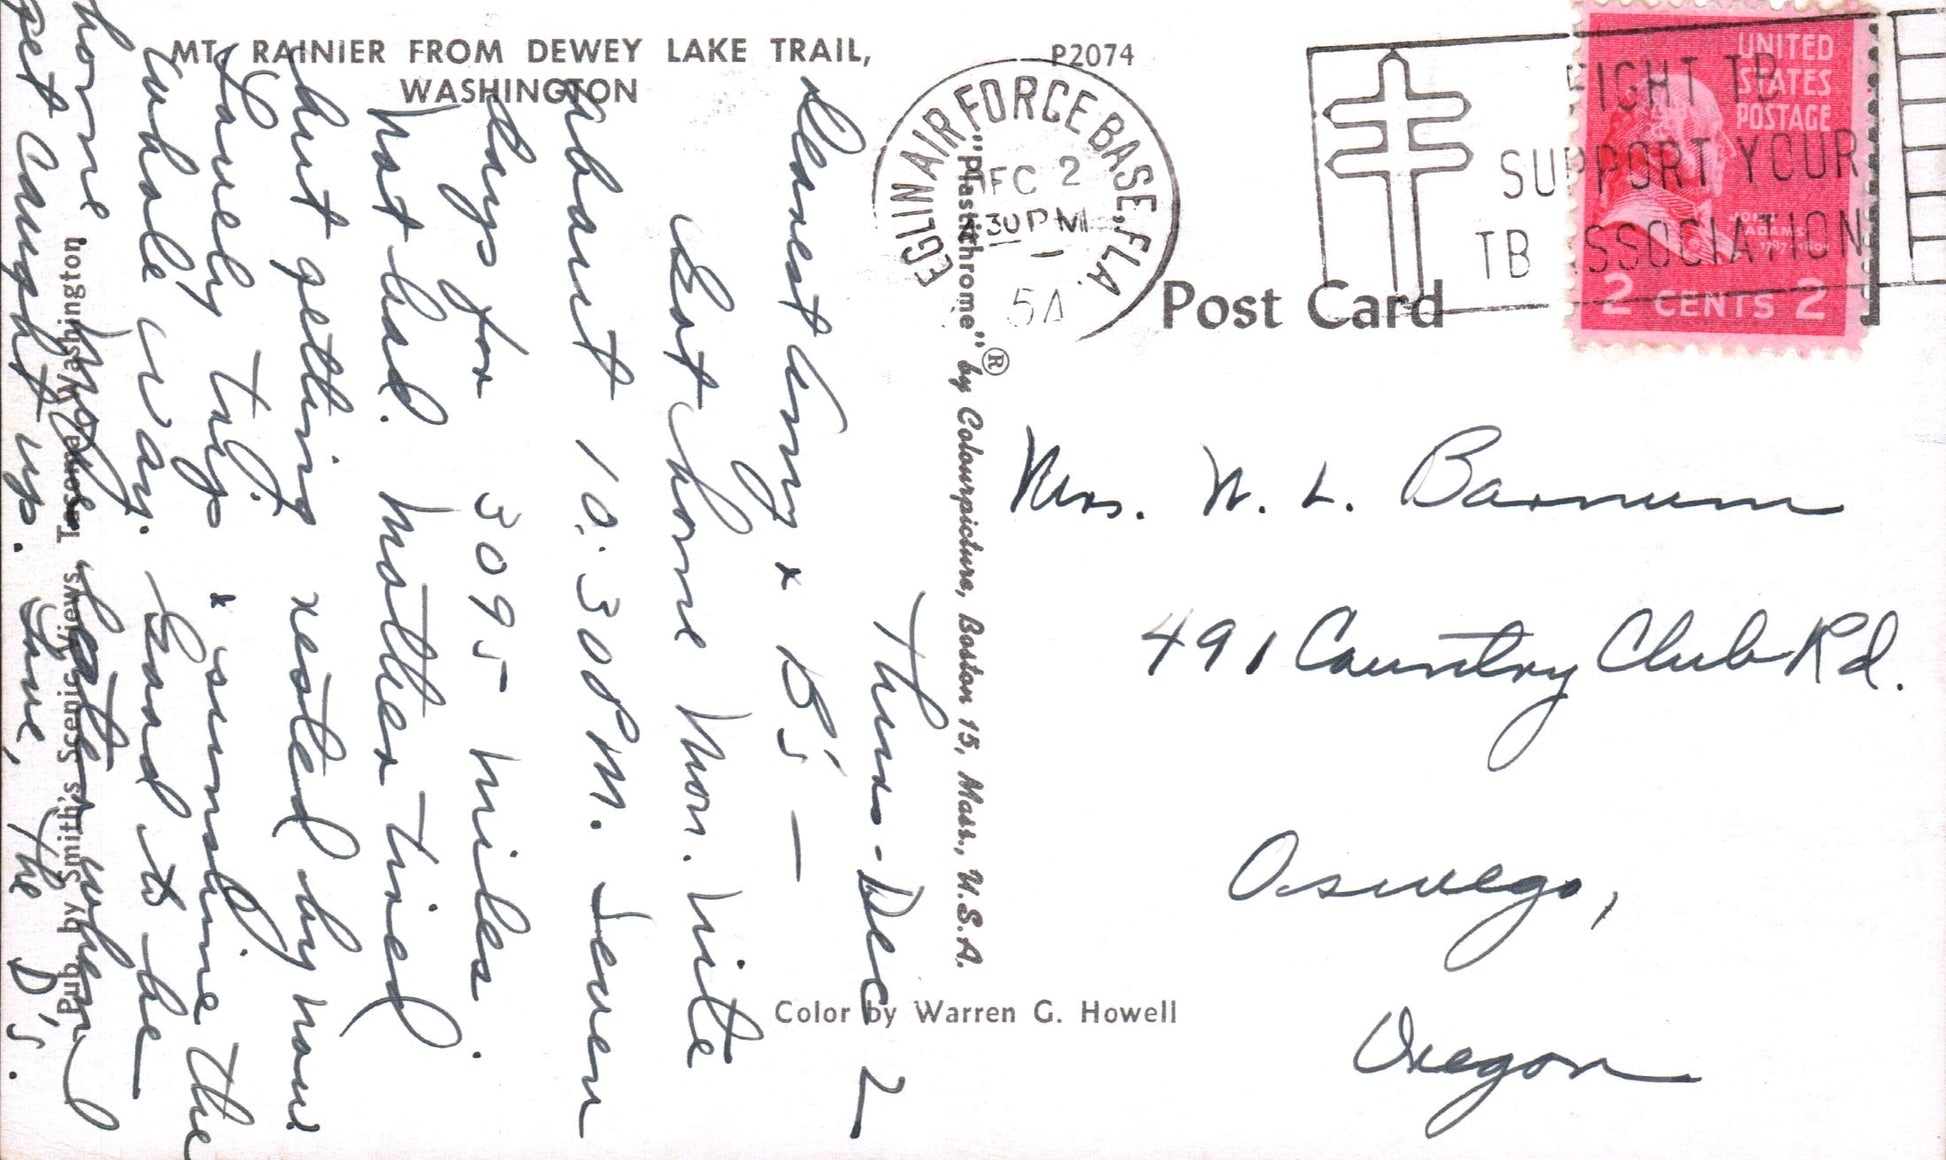 MT. RAINIER FROM DEWEY LAKE TRAIL,
WASHINGTON
P2074
EGLIN AIR FORCE BASE, FLA.
DEC 2
30 PM
54
FIGHT TB
SUPPORT YOUR
TB ASSOCIATION
UNITED
STATES
POSTAGE
JOHN
ADAMS
1797-1801
2 CENTS 2
Post Card
"Plastichrome" ® by Colourpicture, Boston 15, Mass., U.S.A.
Color by Warren G. Howell
Pub. by Smith's Scenic Views, Tacoma, Washington
Thurs - Dec 2
Dearest Amy + B's —
Got home Mon. nite
about 10:30 PM. Seven
days for 3095 miles.
Not bad. Mother tired
but getting rested by now
Lovely trip + sunshine the
whole way. Good to be
home. More later when I
get caught up. Love, The D's.
Mrs. W. L. Barnum
491 Country Club Rd.
Oswego,
Oregon